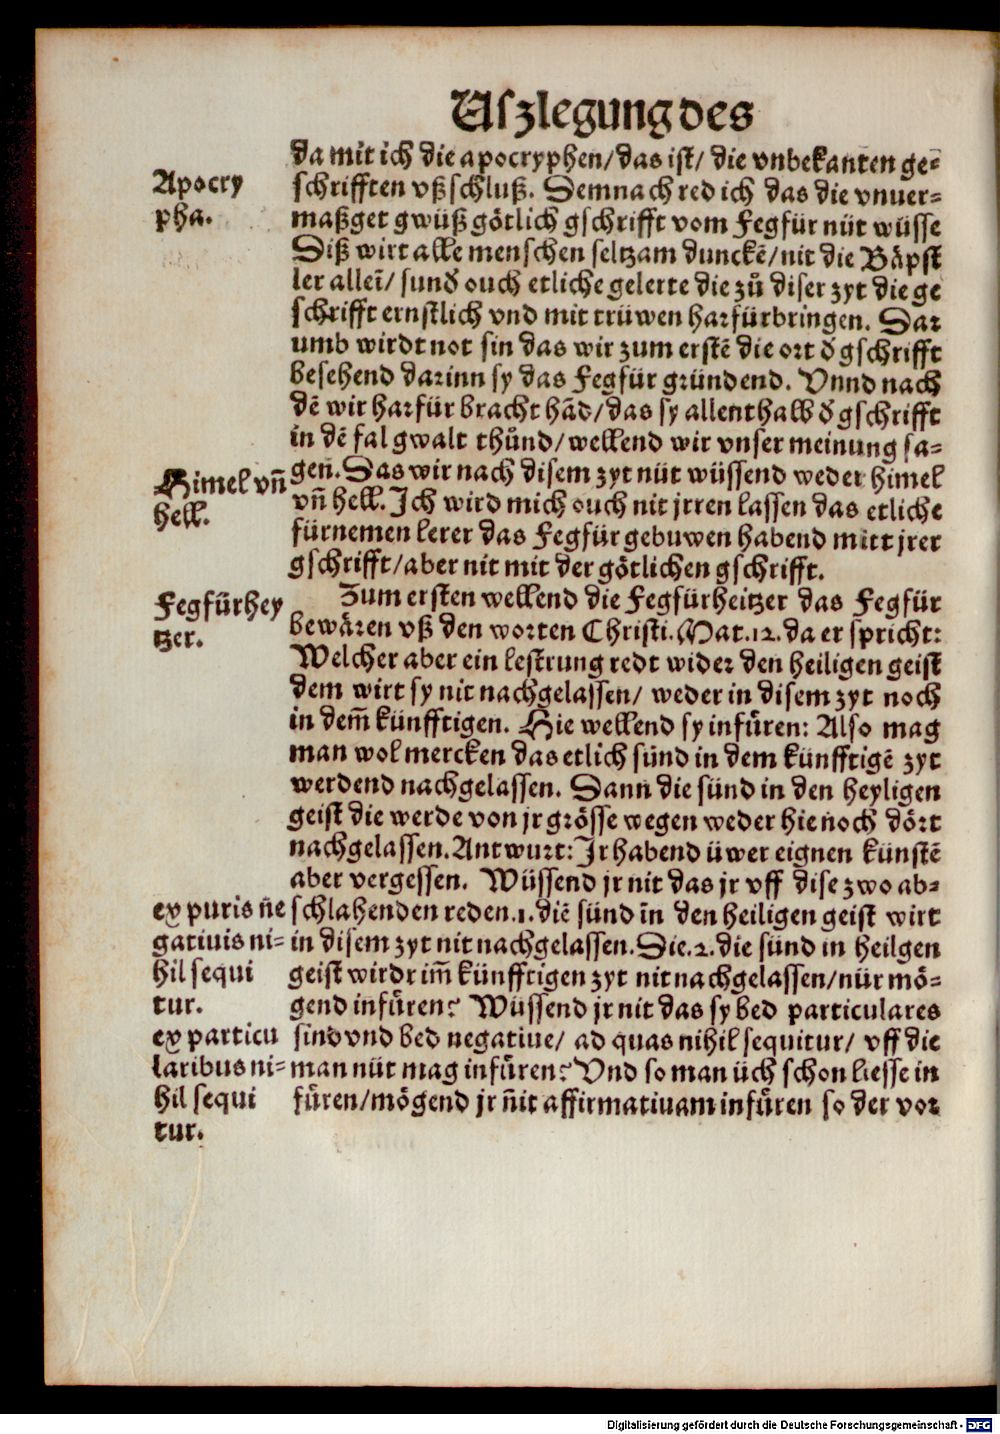 Uszlegung des
da mit ich die apocryphen/das ist/ die vnbekanten ge-
schrifften vßschluß. Demnach red ich das die vnuer-
maßget gwüß götlich gschrifft vom Fegfür nüt wüsse
Diß wirt alle menschen seltzam dunckē/nit die Bäpst
ler alleī/ sund̕ ouch etliche gelerte die zů diser zyt die ge
schrifft ernstlich vnd mit trüwen harfürbringen. Dar
umb wirdt not sin das wir zum erstē die ort d̕ gschrifft
besehend darinn sy das Fegfür gründend. Vnnd nach
dē wir harfür bracht hād/das sy allenthalb d̕ gschrifft
in dē fal gwalt thůnd/wellend wir vnser meinung sa-
gen. Das wir nach disem zyt nüt wüssend weder himel
vñ hell. Ich wird mich ouch nit jrren lassen das etliche
fürnemen lerer das Fegfür gebuwen habend mitt jrer
gschrifft/aber nit mit der götlichen gschrifft.
Zum ersten wellend die Fegfürheitzer das Fegfür
bewären vß den worten Christi. Mat.12. da er spricht:
Welcher aber ein lestrung redt wider den heiligen geist
dem wirt sy nit nachgelassen/ weder in disem zyt noch
in dem̄ künfftigen. Hie wellend sy infüren: Also mag
man wol mercken das etlich sünd in dem künfftigē zyt
werdend nachgelassen. Dann die sünd in den heyligen
geist die werde von jr grösse wegen weder hie noch dört
nachgelassen. Antwurt: Ir habend üwer eignen künstē
aber vergessen. Wüssend jr nit das jr vff dise zwo ab-
schlahenden reden.1.diē sünd īn den heiligen geist wirt
in disem zyt nit nachgelassen. Die.2. die sünd in heilgen
geist wirdt im̄ künfftigen zyt nit nachgelassen/nür mö-
gend infüren? Wüssend jr nit das sy bed particulares
sind vnd bed negatiue/ ad quas nihil sequitur/ vff die
man nüt mag infüren? Vnd so man üch schon liesse in
füren/mögend jr ñit affirmatiuam infüren so der vor
Apocry
pha.
Himel vñ
hell.
Fegfürhey
tzer.
ex puris ne
gatiuis ni-
hil sequi
tur.
ex particu
laribus ni-
hil sequi
tur.
Digitalisierung gefördert durch die Deutsche Forschungsgemeinschaft - DFG